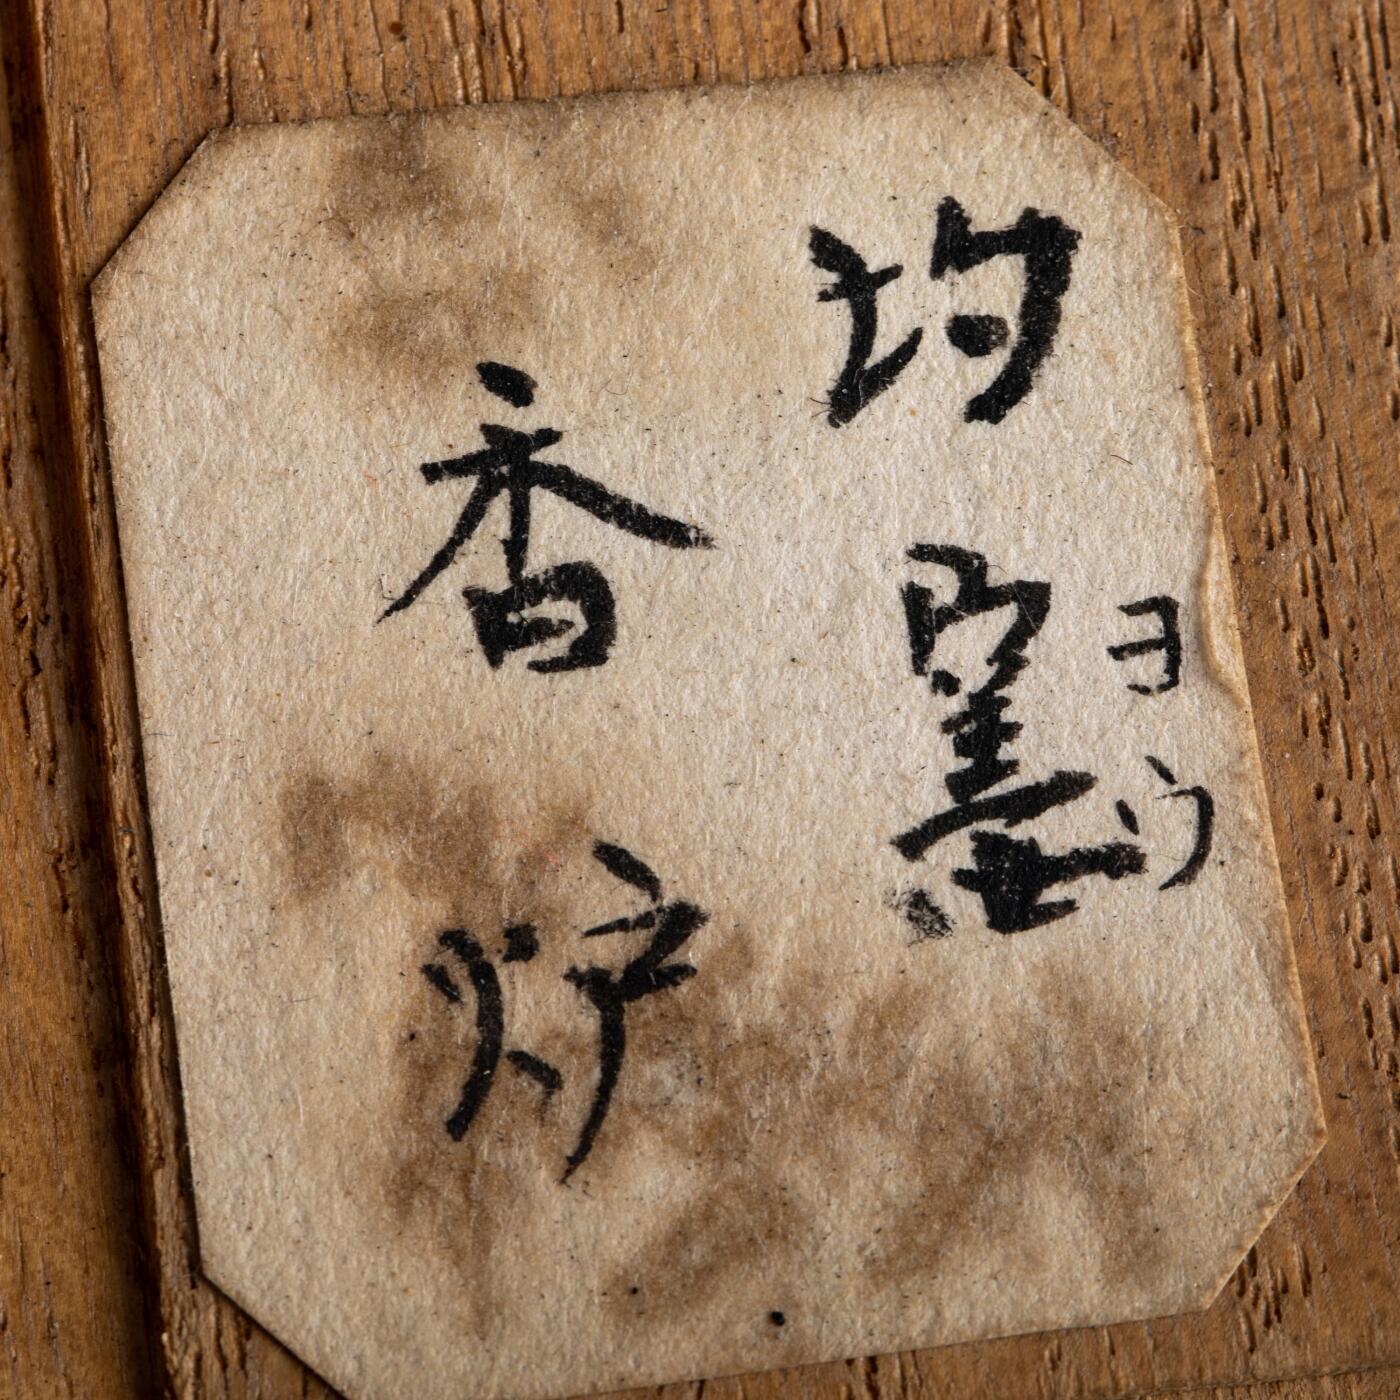 均窯
ヨウ
香炉